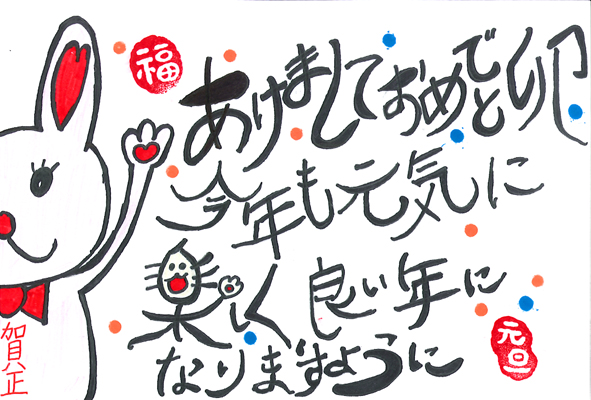 福
あけましておめでと卯
今年も元気に
楽しく良い年に
なりますように
元旦
賀正